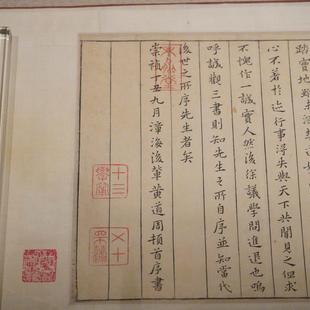 踏實地
心不著於迹行事得失與天下共聞見之但求
不愧作一誠實人然後徐議學問進退也嗚
呼誠觀三書則知先生之所自序並知當代
後世之所序先生者矣
崇禎丁丑九月漳海後輩黃道周頓首序書